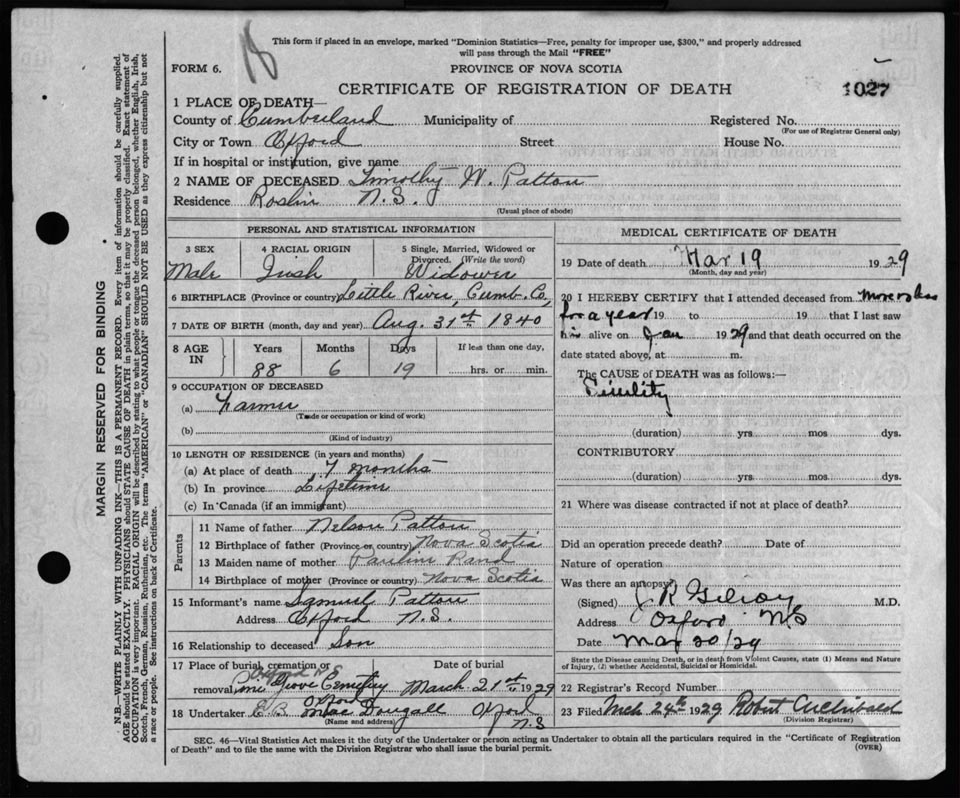 18
This form if placed in an envelope, marked "Dominion Statistics—Free, penalty for improper use, $300," and properly addressed
will pass through the Mail "FREE"
FORM 6.
PROVINCE OF NOVA SCOTIA
CERTIFICATE OF REGISTRATION OF DEATH
1027
1 PLACE OF DEATH—
County of Cumberland Municipality of Registered No.
(For use of Registrar General only)
City or Town Oxford Street House No.
If in hospital or institution, give name
2 NAME OF DECEASED Timothy W. Patton
Residence Roslin N.S.
(Usual place of abode)
PERSONAL AND STATISTICAL INFORMATION
3 SEX 4 RACIAL ORIGIN 5 Single, Married, Widowed or
Divorced. (Write the word)
Male Irish Widower
6 BIRTHPLACE (Province or country) Little River, Cumb. Co,
7 DATE OF BIRTH (month, day and year) Aug. 31st 1840
8 AGE IN Years Months Days If less than one day,
88 6 19 hrs. or min.
9 OCCUPATION OF DECEASED
(a) Farmer
(Trade or occupation or kind of work)
(b)
(Kind of industry)
10 LENGTH OF RESIDENCE (in years and months)
(a) At place of death 7 months
(b) In province Lifetime
(c) In Canada (if an immigrant)
Parents
11 Name of father Nelson Patton
12 Birthplace of father (Province or country) Nova Scotia
13 Maiden name of mother Pauline Rand
14 Birthplace of mother (Province or country) Nova Scotia
15 Informant's name Samuel Patton
Address Oxford N.S.
16 Relationship to deceased Son
17 Place of burial, cremation or Date of burial
removal Pine Grove Cemetery March 21st 1929
Oxford
18 Undertaker E. B. MacDougall Oxford
(Name and address) N.S
MEDICAL CERTIFICATE OF DEATH
19 Date of death Mar 19 1929
(Month, day and year)
20 I HEREBY CERTIFY that I attended deceased from more or less
for a year 19 to 19 that I last saw
him alive on Jan 1929 and that death occurred on the
date stated above, at m.
The CAUSE of DEATH was as follows:—
Senility
(duration) yrs mos dys.
CONTRIBUTORY
(duration) yrs. mos. dys.
21 Where was disease contracted if not at place of death?
Did an operation precede death? Date of
Nature of operation
Was there an autopsy
(Signed) J. R Gilroy M.D.
Address Oxford NS
Date Mar 20/29
State the Disease causing Death, or in death from Violent Causes, state (1) Means and Nature
of Injury, (2) whether Accidental, Suicidal or Homicidal.
22 Registrar's Record Number
23 Filed Mch 24th 1929 Robert Archibald
(Division Registrar)
SEC. 46—Vital Statistics Act makes it the duty of the Undertaker or person acting as Undertaker to obtain all the particulars required in the "Certificate of Registration
of Death" and to file the same with the Division Registrar who shall issue the burial permit.
(OVER)
MARGIN RESERVED FOR BINDING
N.B.—WRITE PLAINLY WITH UNFADING INK—THIS IS A PERMANENT RECORD. Every item of information should be carefully supplied.
AGE should be stated EXACTLY. PHYSICIANS should STATE CAUSE OF DEATH in plain terms, so that it may be properly classified. Exact statement of
OCCUPATION is very important. RACIAL ORIGIN will be described by stating to what people or tongue the deceased person belonged, whether English, Irish,
Scotch, French, German, Russian, Ruthenian, etc. The terms "AMERICAN" or "CANADIAN" SHOULD NOT BE USED as they express citizenship but not
a race or people. See instructions on back of Certificate.